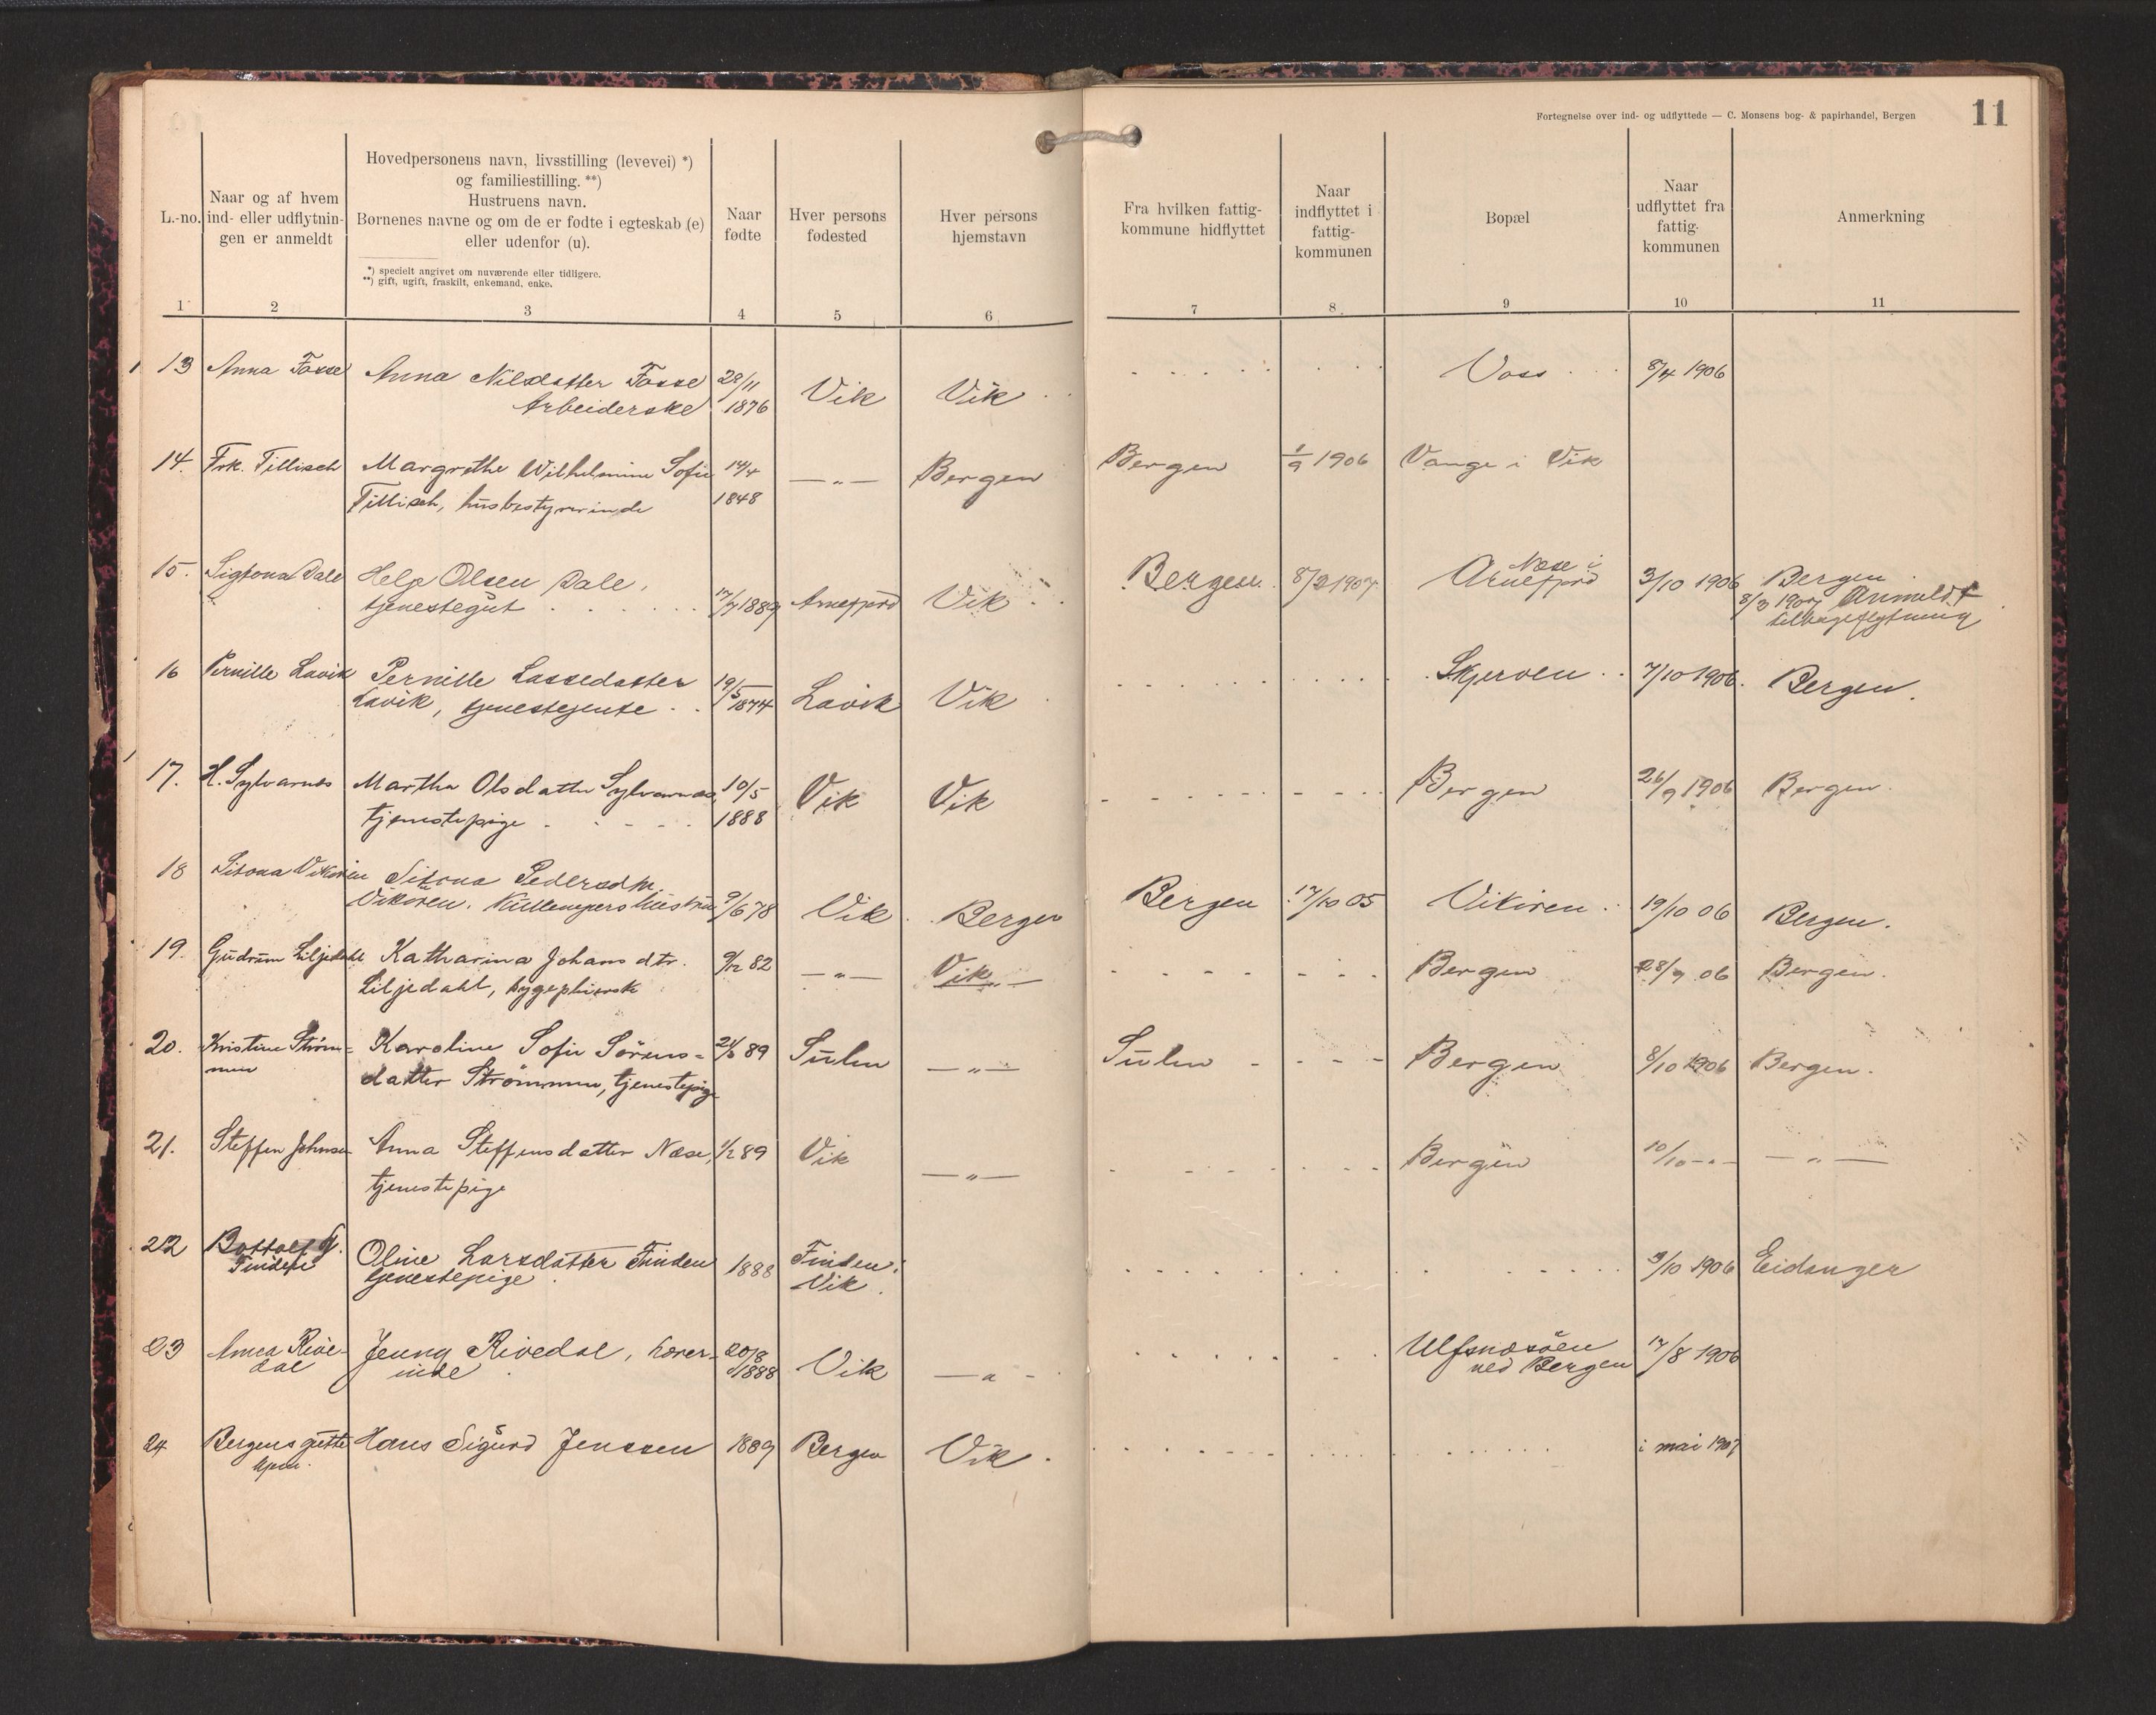 Fortegnelse over ind- og udflyttede — C. Monsens bog- & papirhandel, Bergen
11
L.-no.
Naar og af hvem
ind- eller udflytnin-
gen er anmeldt
Hovedpersonens navn, livsstilling (levevei) *)
og familiestilling. **)
Hustruens navn.
Børnenes navne og om de er fødte i egteskab (e)
eller udenfor (u).
*) specielt angivet om nuværende eller tidligere.
**) gift, ugift, fraskilt, enkemand, enke.
Naar
fødte
Hver persons
fødested
Hver persons
hjemstavn
Fra hvilken fattig-
kommune hidflyttet
Naar
indflyttet i
fattig-
kommunen
Bopæl
Naar
udflyttet fra
fattig-
kommunen
Anmerkning
1 2 3 4 5 6 7 8 9 10 11
13 Anna Fosse Anna Nilsdatter Fosse 28/11 Vik Vik Voss 8/4 1906
Arbeiderske 1876
14. Frk. Tillisch Margrethe Wilhelmine Sofie 14/4 —"— Bergen Bergen 1/9 1906 Vange i Vik
Tillisch, husbestyrerinde 1848
15. Dale Helge Olsen Dale, Arnefjord Vik Bergen 8/2 1907 Næse i Arnefjord 3/10 1906 Bergen
tjenestegut 17/7 1889 8/3 1907 Anmeldt
tilbageflytning
16 Pernille Lavik Pernille Lassedatter 19/5 Lavik Vik Skjerven 7/10 1906. Bergen.
Lavik, tjenestejente 1874
17. H. Sylvarnes Martha Olsdatter Sylvarnes, 10/5 Vik Vik Bergen 26/9 1906 Bergen.
tjenestepige 1888
18 Sitona Vikøren Sitona Pedersdtr.
Vikøren. 9/6 78 Vik Bergen Bergen 17/10 05 Vikøren 19/10 06 Bergen.
19. Gudrun Liljedahl Katharina Johansdtr. 9/12 82 —"— Vik Bergen 28/9 06 Bergen.
Liljedahl, sygepleierske
20. Kristine Strøm- Karoline Sofie Sörens- 89 Sulen —"— Sulen Bergen 8/10 1906 Bergen.
men datter Strömmen, tjenestepige
21. Steffen Johnsen Anna Steffensdatter Næse, 1/2 89 Vik —"— Bergen 10/10 —"— —"—
tjenestepige
22 Bottolf Oline Larsdatter Finden 1888 Finden i 9/10 1906 Eidanger
Finden tjenestepige Vik
23 Anna Rive- Jenny Rivedal, lærer- 20/8 Vik —"— Ulfsnæsöen 17/8 1906
dal inde 1888 ved Bergen
24 Bergensgutte Hans Sigurd Jenssen 1889 Bergen Vik i mai 1907